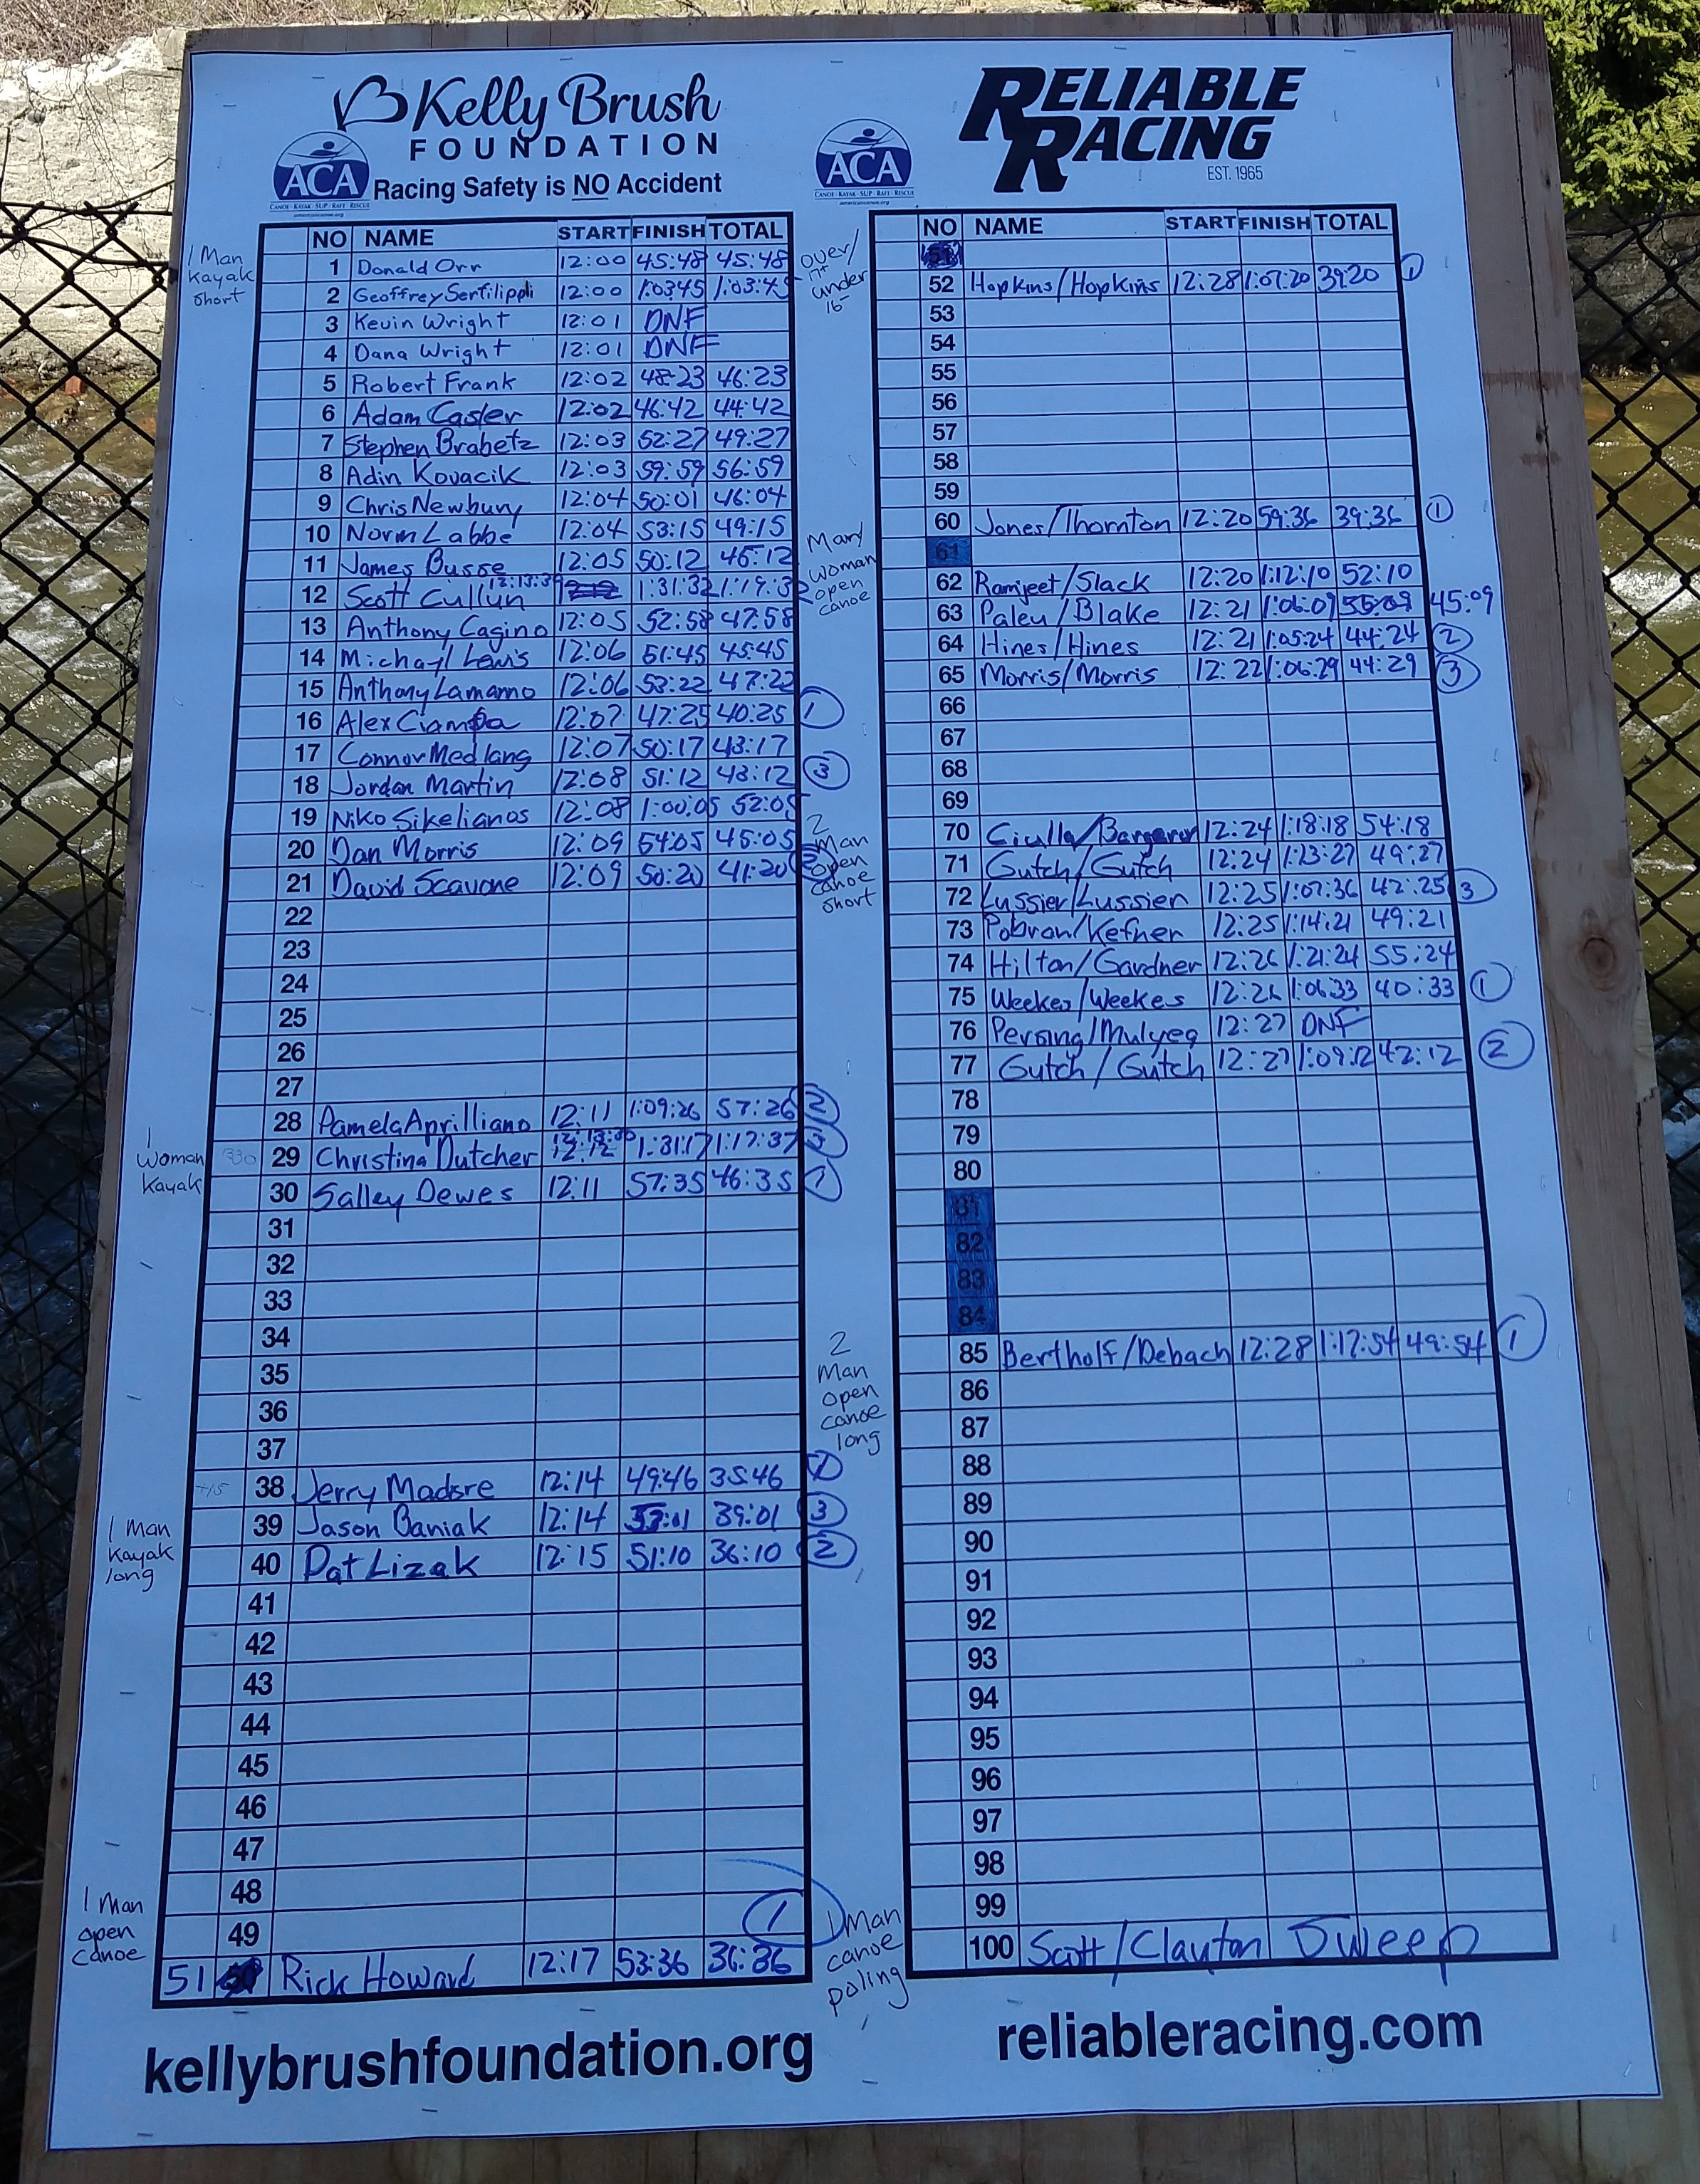 Kelly Brush
FOUNDATION
ACA
CANOE - KAYAK - SUP - RAFT - RESCUE
americancanoe.org
Racing Safety is NO Accident
NO NAME START FINISH TOTAL
1 Man Kayak Short
1 Donald Orr 12:00 45:48 45:48
2 Geoffrey Serfilippi 12:00 1:0345 1:03:45
3 Kevin Wright 12:01 DNF
4 Dana Wright 12:01 DNF
5 Robert Frank 12:02 48:23 46:23
6 Adam Casler 12:02 46:42 44:42
7 Stephen Brabetz 12:03 52:27 49:27
8 Adin Kovacik 12:03 59:59 56:59
9 Chris Newbury 12:04 50:01 46:04
10 Norm Labbe 12:04 53:15 49:15
11 James Busse 12:05 50:12 45:12
12 Scott Cullun 12:13:39 1:31:32 1:19:32
13 Anthony Cagino 12:05 52:58 47:58
14 Michayl Lewis 12:06 51:45 45:45
15 Anthony Lamanno 12:06 53:22 47:22
16 Alex Ciampa 12:07 47:25 40:25 1
17 Connor Medlang 12:07 50:17 43:17
18 Jordan Martin 12:08 51:12 43:12 3
19 Niko Sikelianos 12:08 1:00:05 52:05
20 Dan Morris 12:09 54:05 45:05
21 David Scavone 12:09 50:20 41:20
22
23
24
25
26
27
28 Pamela Aprilliano 12:11 1:09:26 57:26 2
1 Woman Kayak
29 Christina Dutcher 1:31:17 1:17:37 3
30 Salley Dewes 12:11 57:35 46:35 1
31
32
33
34
35
36
37
38 Jerry Madore 12:14 49:46 35:46 1
1 Man Kayak long
39 Jason Baniak 12:14 39:01 3
40 Pat Lizak 12:15 51:10 36:10 2
41
42
43
44
45
46
47
48
1 Man open canoe
49
51 Rick Howard 12:17 53:36 36:36 1
kellybrushfoundation.org
ACA
CANOE - KAYAK - SUP - RAFT - RESCUE
americancanoe.org
RELIABLE
RACING
EST. 1965
NO NAME START FINISH TOTAL
over/ 17+ under 16-
52 Hopkins/Hopkins 12:28 1:07:20 39:20 1
53
54
55
56
57
58
59
60 Jones/Thornton 12:20 59:36 39:36 1
Man/ Woman open canoe
61
62 Ramjeet/Slack 12:20 1:12:10 52:10
63 Paley/Blake 12:21 1:06:09 45:09
64 Hines/Hines 12:21 1:05:24 44:24 2
65 Morris/Morris 12:22 1:06:29 44:29 3
66
67
68
69
2 Man open canoe short
70 12:24 1:18:18 54:18
71 Gutch/Gutch 12:24 1:13:27 49:27
72 Lussier/Lussier 12:25 1:07:36 42:25 3
73 12:25 1:14:21 49:21
74 Hilton/Gardner 12:26 1:21:24 55:24
75 Weekes/Weekes 12:26 1:06:33 40:33 1
76 12:27 DNF
77 Gutch/Gutch 12:27 1:09:12 42:12 2
78
79
80
81
82
83
84
2 Man open canoe long
85 Bertholf/Debach 12:28 1:17:54 49:54 1
86
87
88
89
90
91
92
93
94
95
96
97
98
99
1 Man canoe poling
100 Scott/Clayton Sweep
reliableracing.com